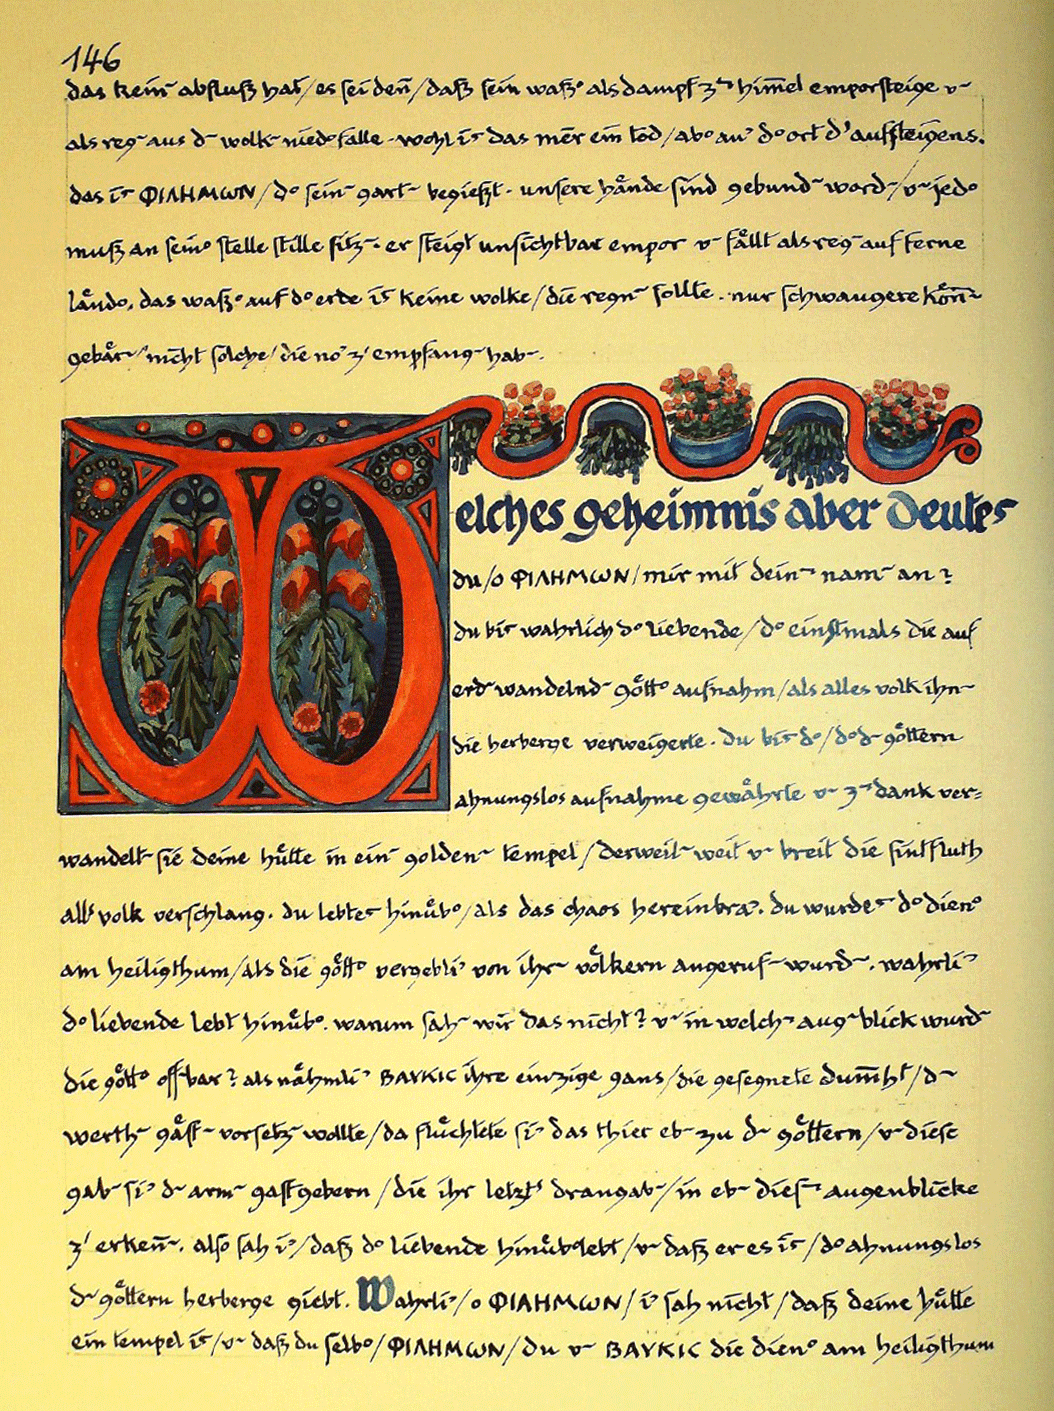 146
das kein~ abfluß hat/es sei deñ/daß sein waß° als dampf z~ him̄el emporsteige v~
als reg~ aus d~ wolk~ nied°falle. wohl is das mēr ein tod/ab° au' d° ort d' aufsteigens.
das is ΦΙΛΗΜΩΝ/d° sein~ gart~ begießt. unsere hånde sind gebund~ word~/v~ jed°
muß an sein° stelle stille sitz~. er steigt unsichtbar empor v~ fållt als reg~ auf ferne
lånd°. das waß° auf d° erde is keine wolke/die regn~ sollte. nur schwangere kön̄~
gebår~/nicht solche/die no' z' empfang~ hab~.
Welches geheimnis aber deutes
du/o ΦΙΛΗΜΩΝ/mir mit dein~ nam~ an?
du bis wahrlich d° liebende/d° einstmals die auf
erd~ wandelnd~ gött° aufnahm/als alles volk ihn~
die herberge verweigerte. du bis d°/d° d~ göttern
ahnungslos aufnahme gewåhrte v~ z~ dank ver=
wandelt~ sie deine hůtte in ein~ golden~ tempel/derweil~ weit v~ breit die sintfluth
all' volk verschlang. du lebtes hinůb°/als das chaos hereinbra'. du wurdes d° dien°
am heiligthum/als die gött° vergebli' von ihr~ völkern angeruf~ wurd~. wahrli'
d° liebende lebt hinůb°. warum sah~ wir das nicht? v~ in welch~ aug~blick wurd~
die gött° offbar? als nåhmli' ΒΑΥΚΙC ihre einzige gans/die gesegnete dum̄ht/d~
werth~ gåst~ vorsetz~ wollte/da flůchtete si' das thier eb~ zu d~ göttern/v~ diese
gab~ si' d~ arm~ gastgebern/die ihr letzt' drangab~/in eb~ dies~ augenblicke
z' erken̄~. also sah i'/daß d° liebende hinůb°lebt/v~ daß er es is/d° ahnungslos
d~ göttern herberge giebt. Wahrli'/o ΦΙΛΗΜΩΝ/i' sah nicht/daß deine hůtte
ein tempel is/v~ daß du selb°/ΦΙΛΗΜΩΝ/du v~ ΒΑΥΚΙC die dien° am heiligthum